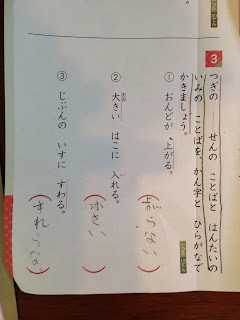 3 つぎの ——せんの ことばと はんたいの
いみの ことばを、かん字と ひらがなで
かきましょう。
① おんどが 上がる。
(上がらない)
② 大きい はこに 入れる。
(小さい)
③ じぶんの いすに すわる。
(すわらない)